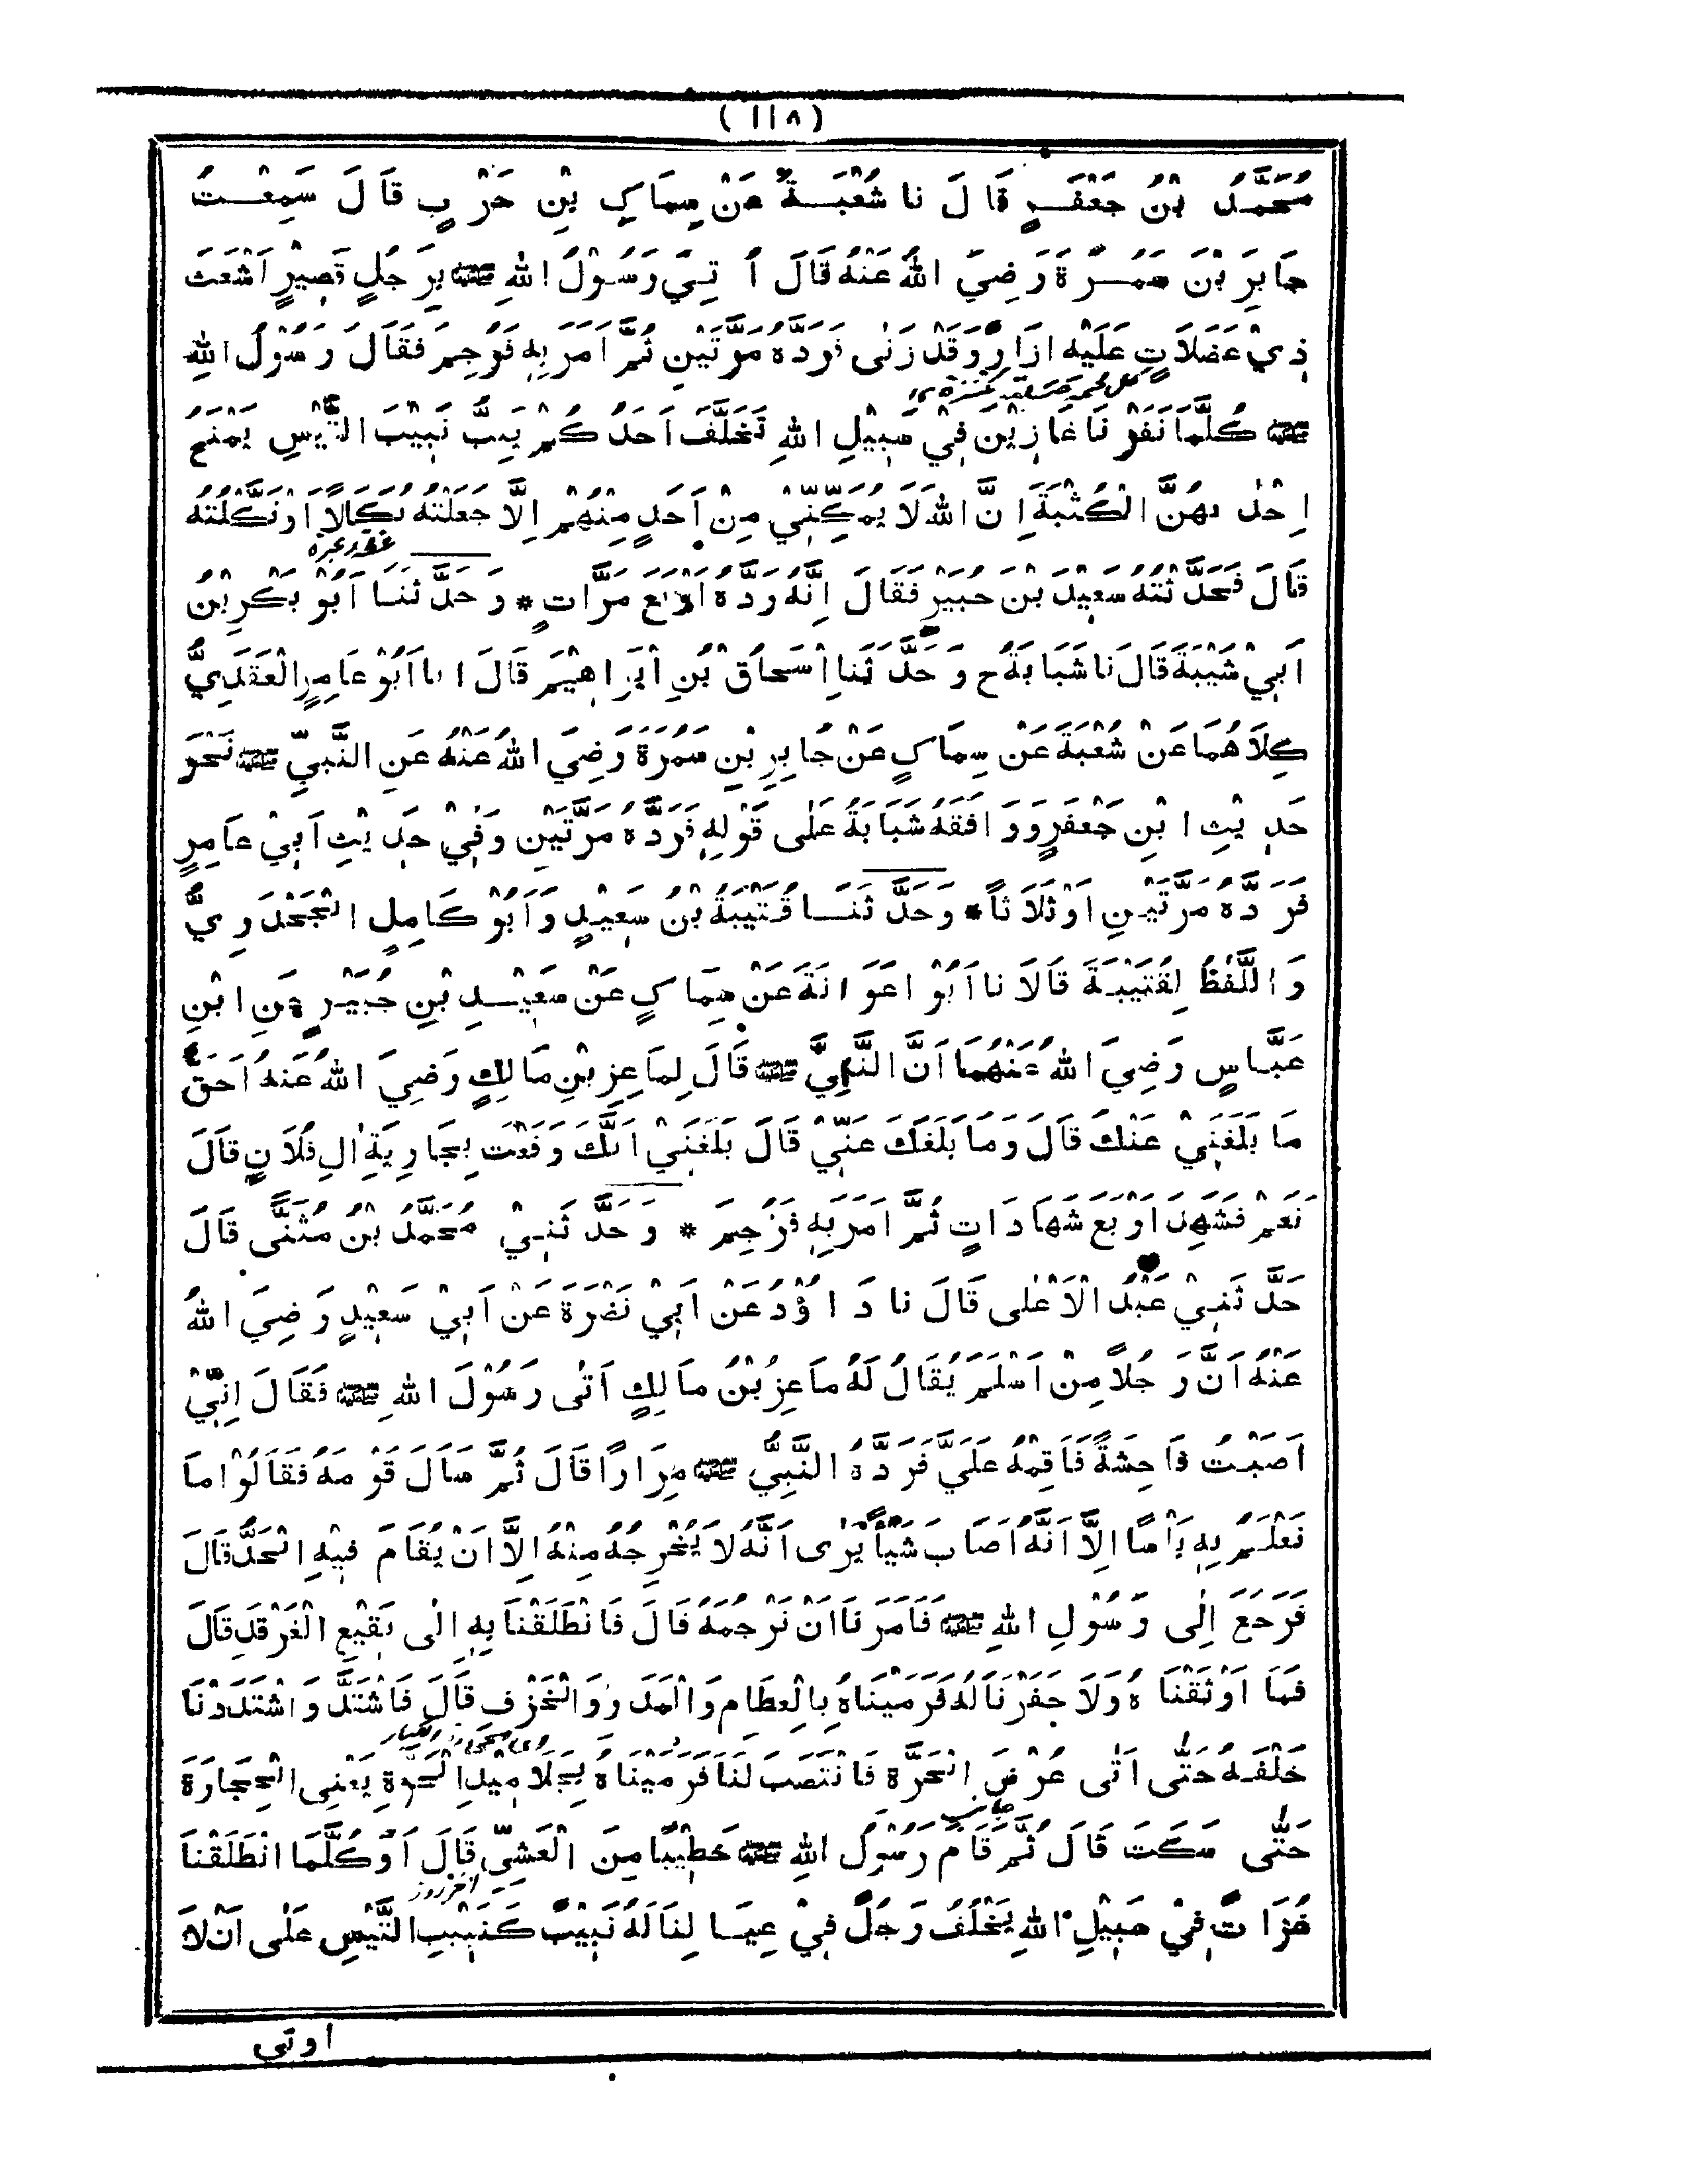 (١١٨)
مُحَمَّدُ بْنُ جَعْفَرٍ قَالَ نا شُعْبَةُ عَنْ سِمَاكِ بْنِ حَرْبٍ قَالَ سَمِعْتُ
جَابِرَ بْنَ سَمُرَةَ رَضِيَ اللهُ عَنْهُ قَالَ أُتِيَ رَسُوْلُ اللهِ ﷺ بِرَجُلٍ قَصِيْرٍ اَشْعَثَ
ذِيْ عَضَلَاتٍ عَلَيْهِ اِزَارٌ وَقَدْ زَنٰى فَرَدَّهُ مَرَّتَيْنِ ثُمَّ اَمَرَ بِهِ فَرُجِمَ فَقَالَ رَسُوْلُ اللهِ
ﷺ كُلَّمَا نَفَرْنَا غَازِيْنَ فِيْ سَبِيْلِ اللهِ تَخَلَّفَ اَحَدُكُمْ يَنِبُّ نَبِيْبَ التَّيْسِ يَمْنَحُ
اِحْدٰىهُنَّ الْكُثْبَةَ اِنَّ اللهَ لَا يُمَكِّنِّيْ مِنْ اَحَدٍ مِنْهُمْ اِلَّا جَعَلْتُهُ نَكَالًا اَوْ نَكَّلْتُهُ
قَالَ فَحَدَّثْتُهُ سَعِيْدَ بْنَ جُبَيْرٍ فَقَالَ اِنَّهُ رَدَّهُ اَرْبَعَ مَرَّاتٍ * وَحَدَّثَنَا اَبُوْ بَكْرِ بْنُ
اَبِيْ شَيْبَةَ قَالَ نا شَبَابَةُ ح وَحَدَّثَنَا اِسْحَاقُ بْنُ اِبْرَاهِيْمَ قَالَ انا اَبُوْ عَامِرٍ الْعَقَدِيُّ
كِلَاهُمَا عَنْ شُعْبَةَ عَنْ سِمَاكٍ عَنْ جَابِرِ بْنِ سَمُرَةَ رَضِيَ اللهُ عَنْهُ عَنِ النَّبِيِّ ﷺ نَحْوَ
حَدِيْثِ ابْنِ جَعْفَرٍ وَوَافَقَهُ شَبَابَةُ عَلٰى قَوْلِهِ فَرَدَّهُ مَرَّتَيْنِ وَفِيْ حَدِيْثِ اَبِيْ عَامِرٍ
فَرَدَّهُ مَرَّتَيْنِ اَوْ ثَلَاثًا * وَحَدَّثَنَا قُتَيْبَةُ بْنُ سَعِيْدٍ وَاَبُوْ كَامِلٍ الْجَحْدَرِيُّ
وَاللَّفْظُ لِقُتَيْبَةَ قَالَا نا اَبُوْ اعَوَانَةَ عَنْ سِمَاكٍ عَنْ سَعِيْدِ بْنِ جُبَيْرٍ عَنِ ابْنِ
عَبَّاسٍ رَضِيَ اللهُ عَنْهُمَا اَنَّ النَّبِيَّ ﷺ قَالَ لِمَاعِزِ بْنِ مَالِكٍ رَضِيَ اللهُ عَنْهُ اَحَقٌّ
مَا بَلَغَنِيْ عَنْكَ قَالَ وَمَا بَلَغَكَ عَنِّيْ قَالَ بَلَغَنِيْ اَنَّكَ وَقَعْتَ بِجَارِيَةِ اٰلِ فُلَانٍ قَالَ
نَعَمْ فَشَهِدَ اَرْبَعَ شَهَادَاتٍ ثُمَّ اَمَرَ بِهِ فَرُجِمَ * وَحَدَّثَنِيْ مُحَمَّدُ بْنُ مُثَنًّى قَالَ
حَدَّثَنِيْ عَبْدُ الْاَعْلٰى قَالَ نا دَاوُدُ عَنْ اَبِيْ نَضْرَةَ عَنْ اَبِيْ سَعِيْدٍ رَضِيَ اللهُ
عَنْهُ اَنَّ رَجُلًا مِنْ اَسْلَمَ يُقَالُ لَهُ مَاعِزُ بْنُ مَالِكٍ اَتٰى رَسُوْلَ اللهِ ﷺ فَقَالَ اِنِّيْ
اَصَبْتُ فَاحِشَةً فَاَقِمْهُ عَلَيَّ فَرَدَّهُ النَّبِيُّ ﷺ مِرَارًا قَالَ ثُمَّ سَاَلَ قَوْمَهُ فَقَالُوْا مَا
نَعْلَمُ بِهِ بَاْسًا اِلَّا اَنَّهُ اَصَابَ شَيْأً يَرٰى اَنَّهُ لَا يُخْرِجُهُ مِنْهُ اِلَّا اَنْ يُقَامَ فِيْهِ الْحَدُّ قَالَ
فَرَجَعَ اِلٰى رَسُوْلِ اللهِ ﷺ فَاَمَرَنَا اَنْ نَرْجُمَهُ قَالَ فَانْطَلَقْنَا بِهِ اِلٰى بَقِيْعِ الْغَرْقَدِ قَالَ
فَمَا اَوْثَقْنَاهُ وَلَا حَفَرْنَا لَهُ فَرَمَيْنَاهُ بِالْعِظَامِ وَالْمَدَرِ وَالْخَزَفِ قَالَ فَاشْتَدَّ وَاشْتَدَدْنَا
خَلْفَهُ حَتّٰى اَتٰى عُرْضَ الْحَرَّةِ فَانْتَصَبَ لَنَا فَرَمَيْنَاهُ بِجَلَامِيْدِ الْحَرَّةِ يَعْنِى الْحِجَارَةَ
حَتّٰى سَكَتَ قَالَ ثُمَّ قَامَ رَسُوْلُ اللهِ ﷺ خَطِيْبًا مِنَ الْعَشِيِّ قَالَ اَوَكُلَّمَا انْطَلَقْنَا
غُزَاةً فِيْ سَبِيْلِ اللهِ يَخْلُفُ رَجُلٌ فِيْ عِيَالِنَا لَهُ نَبِيْبٌ كَنَبِيْبِ التَّيْسِ عَلٰى اَنْ لَا
اوتى